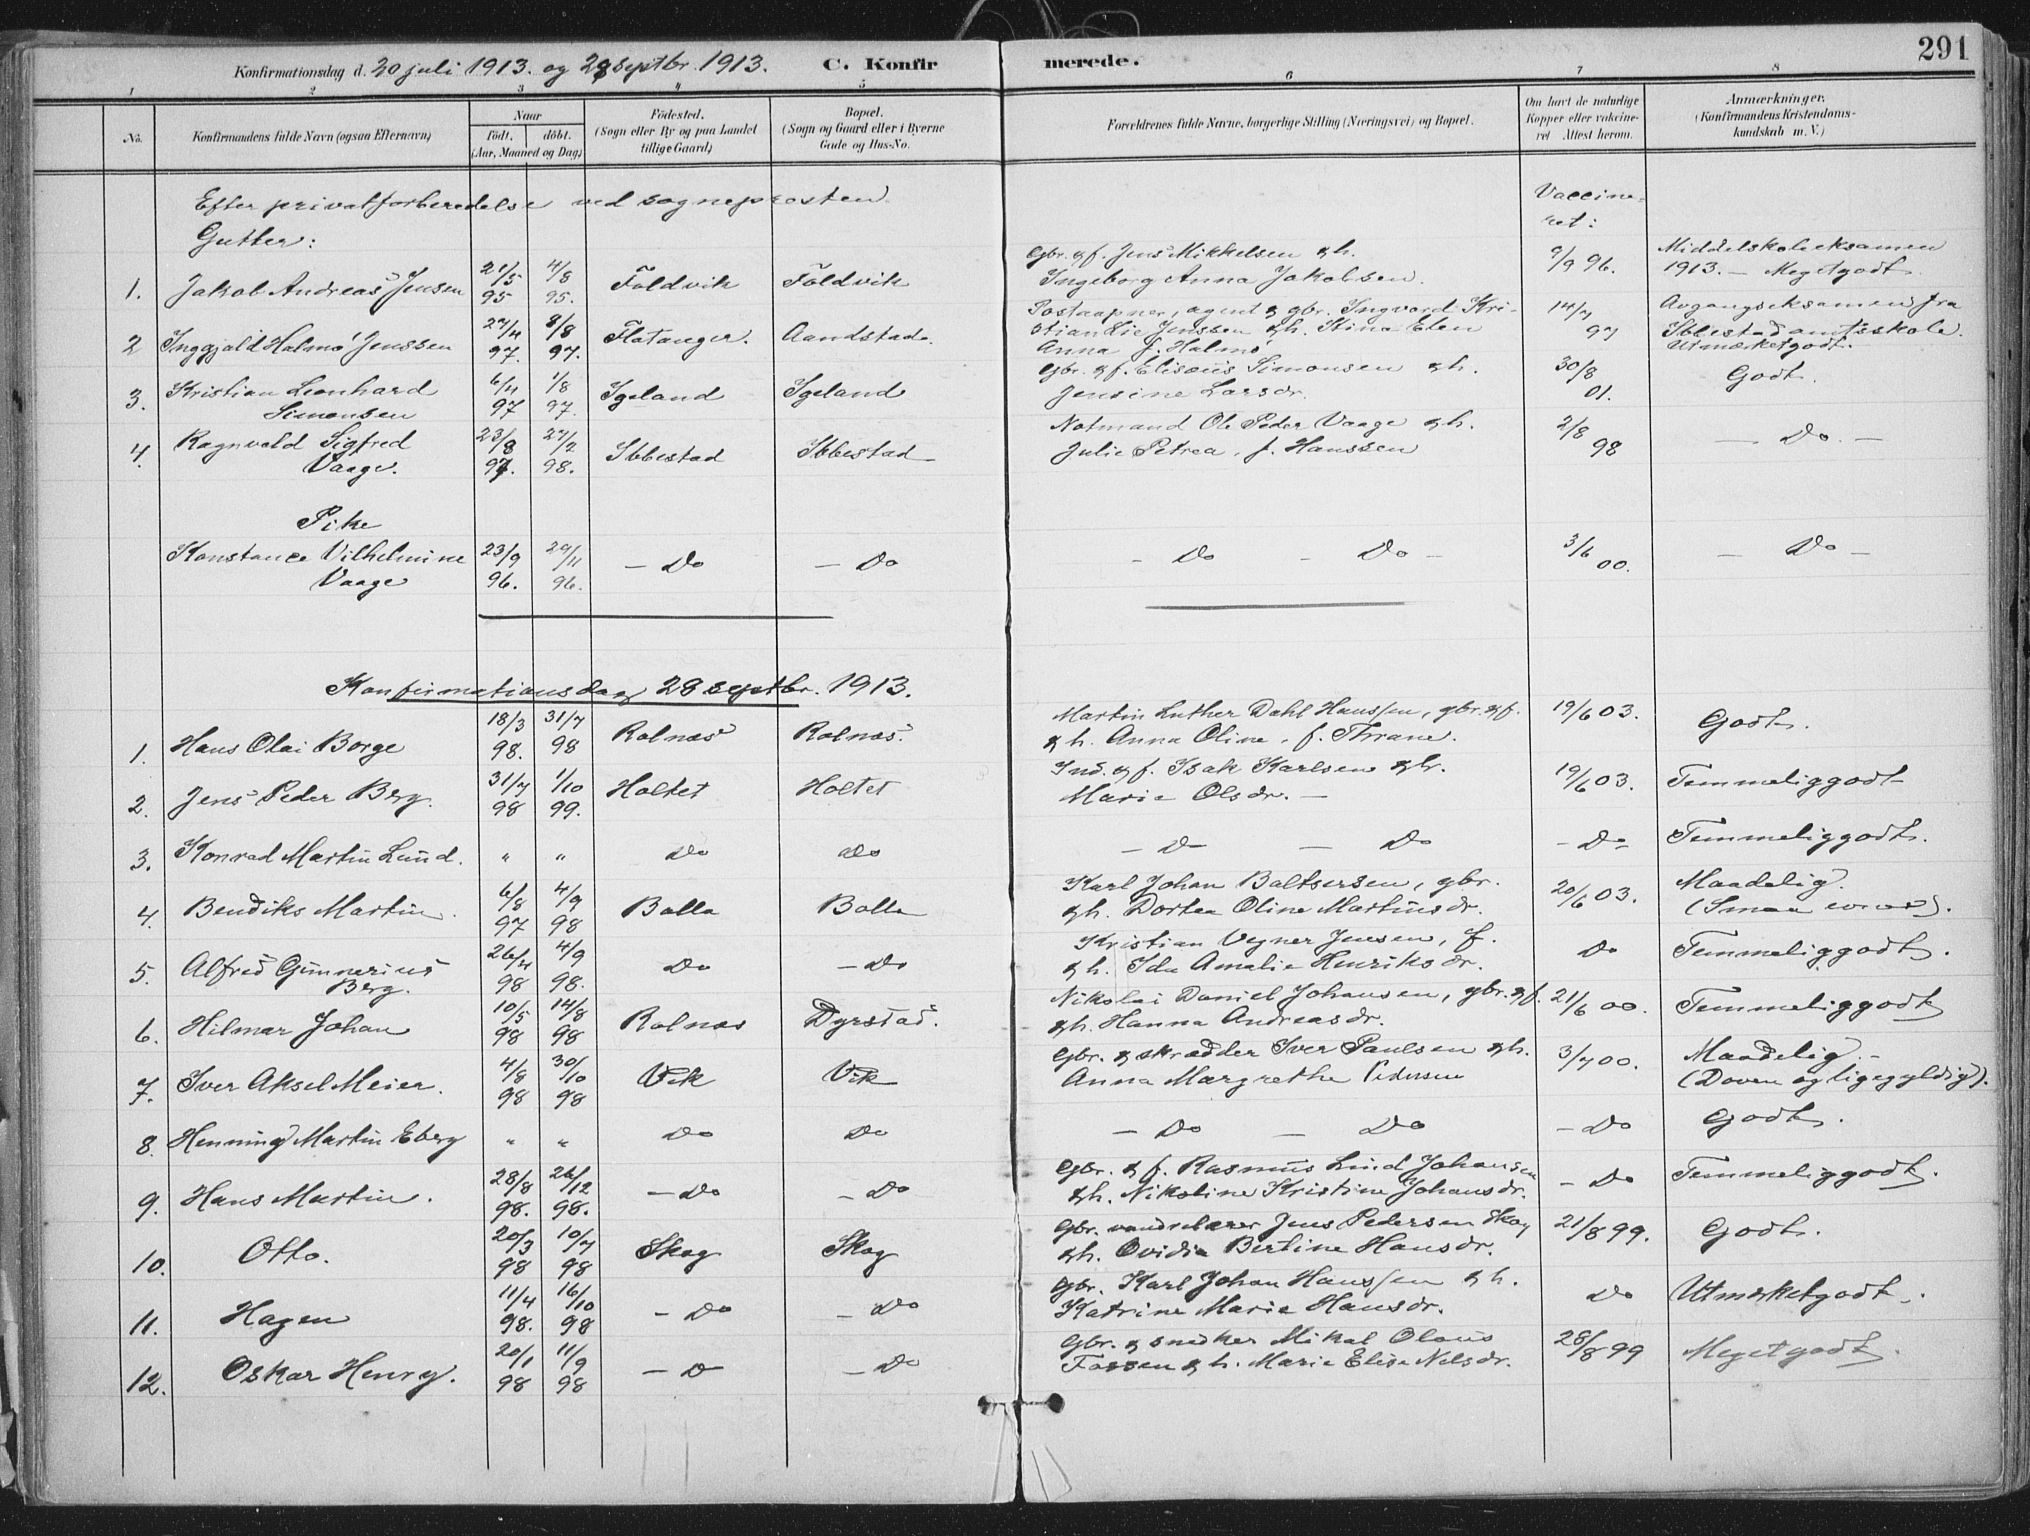 Konfirmationsdag d. 20 juli 1913. og 28 septbr. 1913. C. Konfirmerede. 291
1 2 3 4 5 6 7 8
No. Konfirmandens fulde Navn (ogsaa Efternavn) Naar født. døbt. (Aar, Maaned og Dag) Fødested. (Sogn eller By og paa Landet tillige Gaard) Bopæl. (Sogn og Gaard eller i Byerne Gade og Hus-No. Forældrenes fulde Navne, borgerlige Stilling (Næringsvei) og Bopæl. Om havt de naturlige Kopper eller vakcineret Attest herom. Anmærkninger. (Konfirmandens Kristendomskundskab m. V.)
Efter privatforberedelse ved sogneprosten.
Vaccineret:
Gutter:
1. Jakob Andreas Jensen 21/5 95 4/8 95. Foldvik Foldvik Gbr. & f. Jens Mikkelsen & h. Ingeborg Anna Jakobsen. 9/9 96. Middelskoleeksamen 1913. – Megetgodt.
2 Inggjald Halmø Jenssen 27/4 97. 8/8 97. Flatanger. Aandstad. Postaapner, agent & gbr. Ingvard Kristian Jenssen & h. Kina Elen Anna f. Halmø 14/7 97 Avgangseksamen fra Ibbestad amtsskole. Utmerketgodt.
3. Kristian Leonhard Simonsen 6/4 97 1/8 97. Igeland Igeland Gbr. & f. Elisæus Simonsen & h. Jensine Larsdr. 30/8 01. Godt.
4. Ragnvald Sigfred Vaage. 23/8 97. 27/2 98. Ibbestad Ibbestad Notmand Ole Peder Vaage & h. Julie Petrea, f. Hanssen 2/8 98 – Do. –
Pike
Konstance Vilhelmine Vaage 23/9 96. 29/11 96. – Do – Do – Do – Do – 3/6 00. – Do –
Konfirmationsdag 28 septbr. 1913.
1. Hans Olai Borge 18/3 98. 31/7 98 Rolnæs Rolnæs. Martin Luther Dahl Hanssen, gbr. & f. & h. Anna Oline, f. Thrane. 19/6 03. Godt.
2. Jens Peder Berg. 31/7 98 1/10 99. Holtet Holtet Ind. & f. Isak Karlsen & h. Marie Olsdr. – 19/6 03. Temmeliggodt
3. Konrad Martin Lund. " " Do Do – Do – Do – Do Temmeliggodt.
4. Bendiks Martin. 6/8 97 4/9 98 Bolla Bolla Karl Johan Baltsersen, gbr. & h. Dortea Oline Martinsdr. 20/6 03. Maadelig. (Smaa evner).
5. Alfred Gunnerius Berg. 26/4 98 4/9 98. Do – Do Kristian Vegner Jensen, f. & h. Ida Amalie Henriksdr. Do Temmeliggodt.
6. Hilmar Johan 10/5 98 14/8 98 Rolnæs Dyrstad. Nikolai Daniel Johansen, gbr. & f. & h. Hanna Andreasdr. 21/6 00. Temmeliggodt
7. Iver Aksel Meier. 4/8 98 30/10 98 Vik Vik Gbr. & skrædder Iver Paulsen & h. Anna Margrethe Pedersen 3/7 00. Maadelig. – (Doven og ligegyldig).
8. Henning Martin Eberg " " Do Do – Do – Do – Do Godt.
9. Hans Martin. 28/8 98. 26/12 98. – Do – Do Gbr. & f. Rasmus Lind Johansen & h. Nikoline Kristine Johansdr. – Do Temmeliggodt.
10. Otto. 20/3 98 10/7 98 Skog Skog Gbr. vandrelærer Jens Pedersen Skog & h. Ovidia Bertine Hansdr. 21/8 99. Godt.
11. Hagen 11/4 98. 16/10 98 – Do – Do Gbr. Karl Johan Hanssen & h. Katrine Marie Hansdr. Do Utmerketgodt.
12. Oskar Henry. 20/1 98 11/9 98 – Do – Do Gbr. & snedker Mikal Olaus Fossen & h. Marie Elise Nelsdr. 28/8 99 Megetgodt.